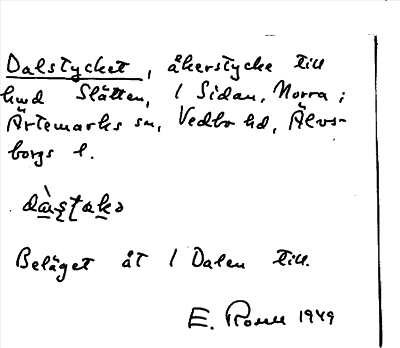 Dalstycket, åkerstycke till
hmd Slätten, l Sidan, Norra;
Ärtemarks sn, Vedbo hd, Älvs-
borgs l.
Beläget åt l Dalen till.
E. Rosell 1949